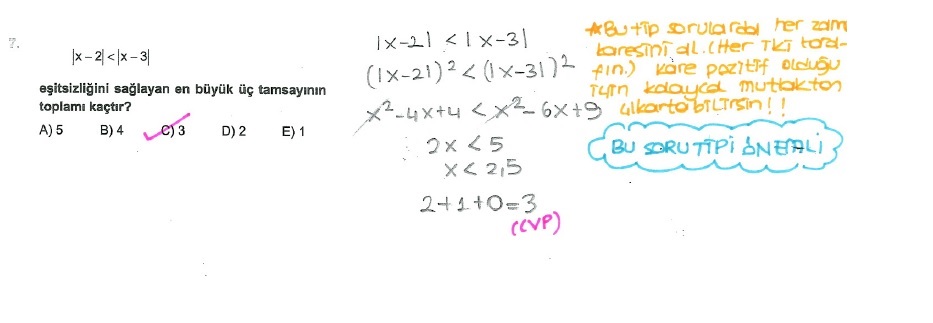 7.
|x – 2| < |x – 3|
eşitsizliğini sağlayan en büyük üç tamsayının
toplamı kaçtır?
A) 5 B) 4 C) 3 D) 2 E) 1
|x-2| < |x-3|
(|x-2|)² < (|x-3|)²
x²-4x+4 < x²-6x+9
2x < 5
x < 2,5
2+1+0=3
(CVP)
*Bu tip sorularda her zam
karesini al. (Her iki tara-
fın.) kare pozitif olduğu
için kolayca mutlaktan
çıkartabilirsin!!
BU SORU TİPİ ÖNEMLİ